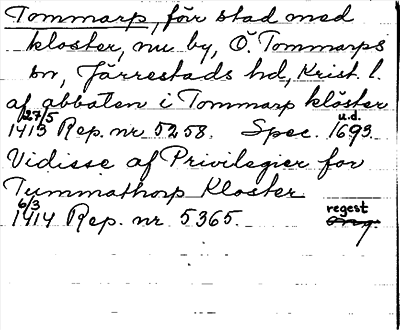 Tommarp, förr stad med
kloster, nu by, Ö. Tommarps
sn, Järrestads hd, Krist. l.
af abboten i Tommarp kloster
27/5 u.d.
1413 Rep. nr 5258. Spec. 1693
Vidisse af Privilegier for
Tummathorp Kloster
6/3 regest
1414 Rep. nr 5365. orig.